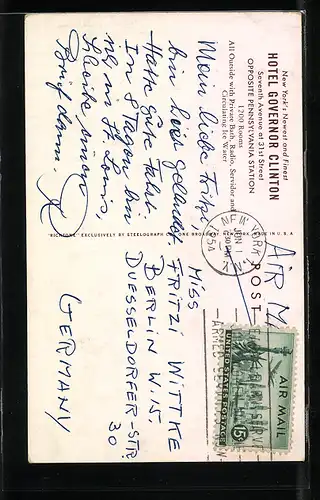 New York's Newest and Finest
HOTEL GOVERNOR CLINTON
Seventh Avenue at 31st Street
OPPOSITE PENNSYLVANIA STATION
1200 Rooms
All Outside with Private Bath, Radio, Servidor and
Circulating Ice Water
Mein liebe Fritzi
bin hier gelandet
Hatte gute Fahrt.
In 8 Tagen bin
ich in St. Louis,
Schreibe einen
Brief dann.
"RICHTONE" EXCLUSIVELY BY STEELOGRAPH BROADWAY, NEW YORK. MADE IN U.S.A.
POST
AIR MA
NEW YORK
JUN 1
30 PM
195
AIR MAIL
UNITED STATES POSTAGE
15¢
ARMED
MISS
FRITZI WITTKE
BERLIN W.15.
DUESSELDORFER-STR.
30
GERMANY